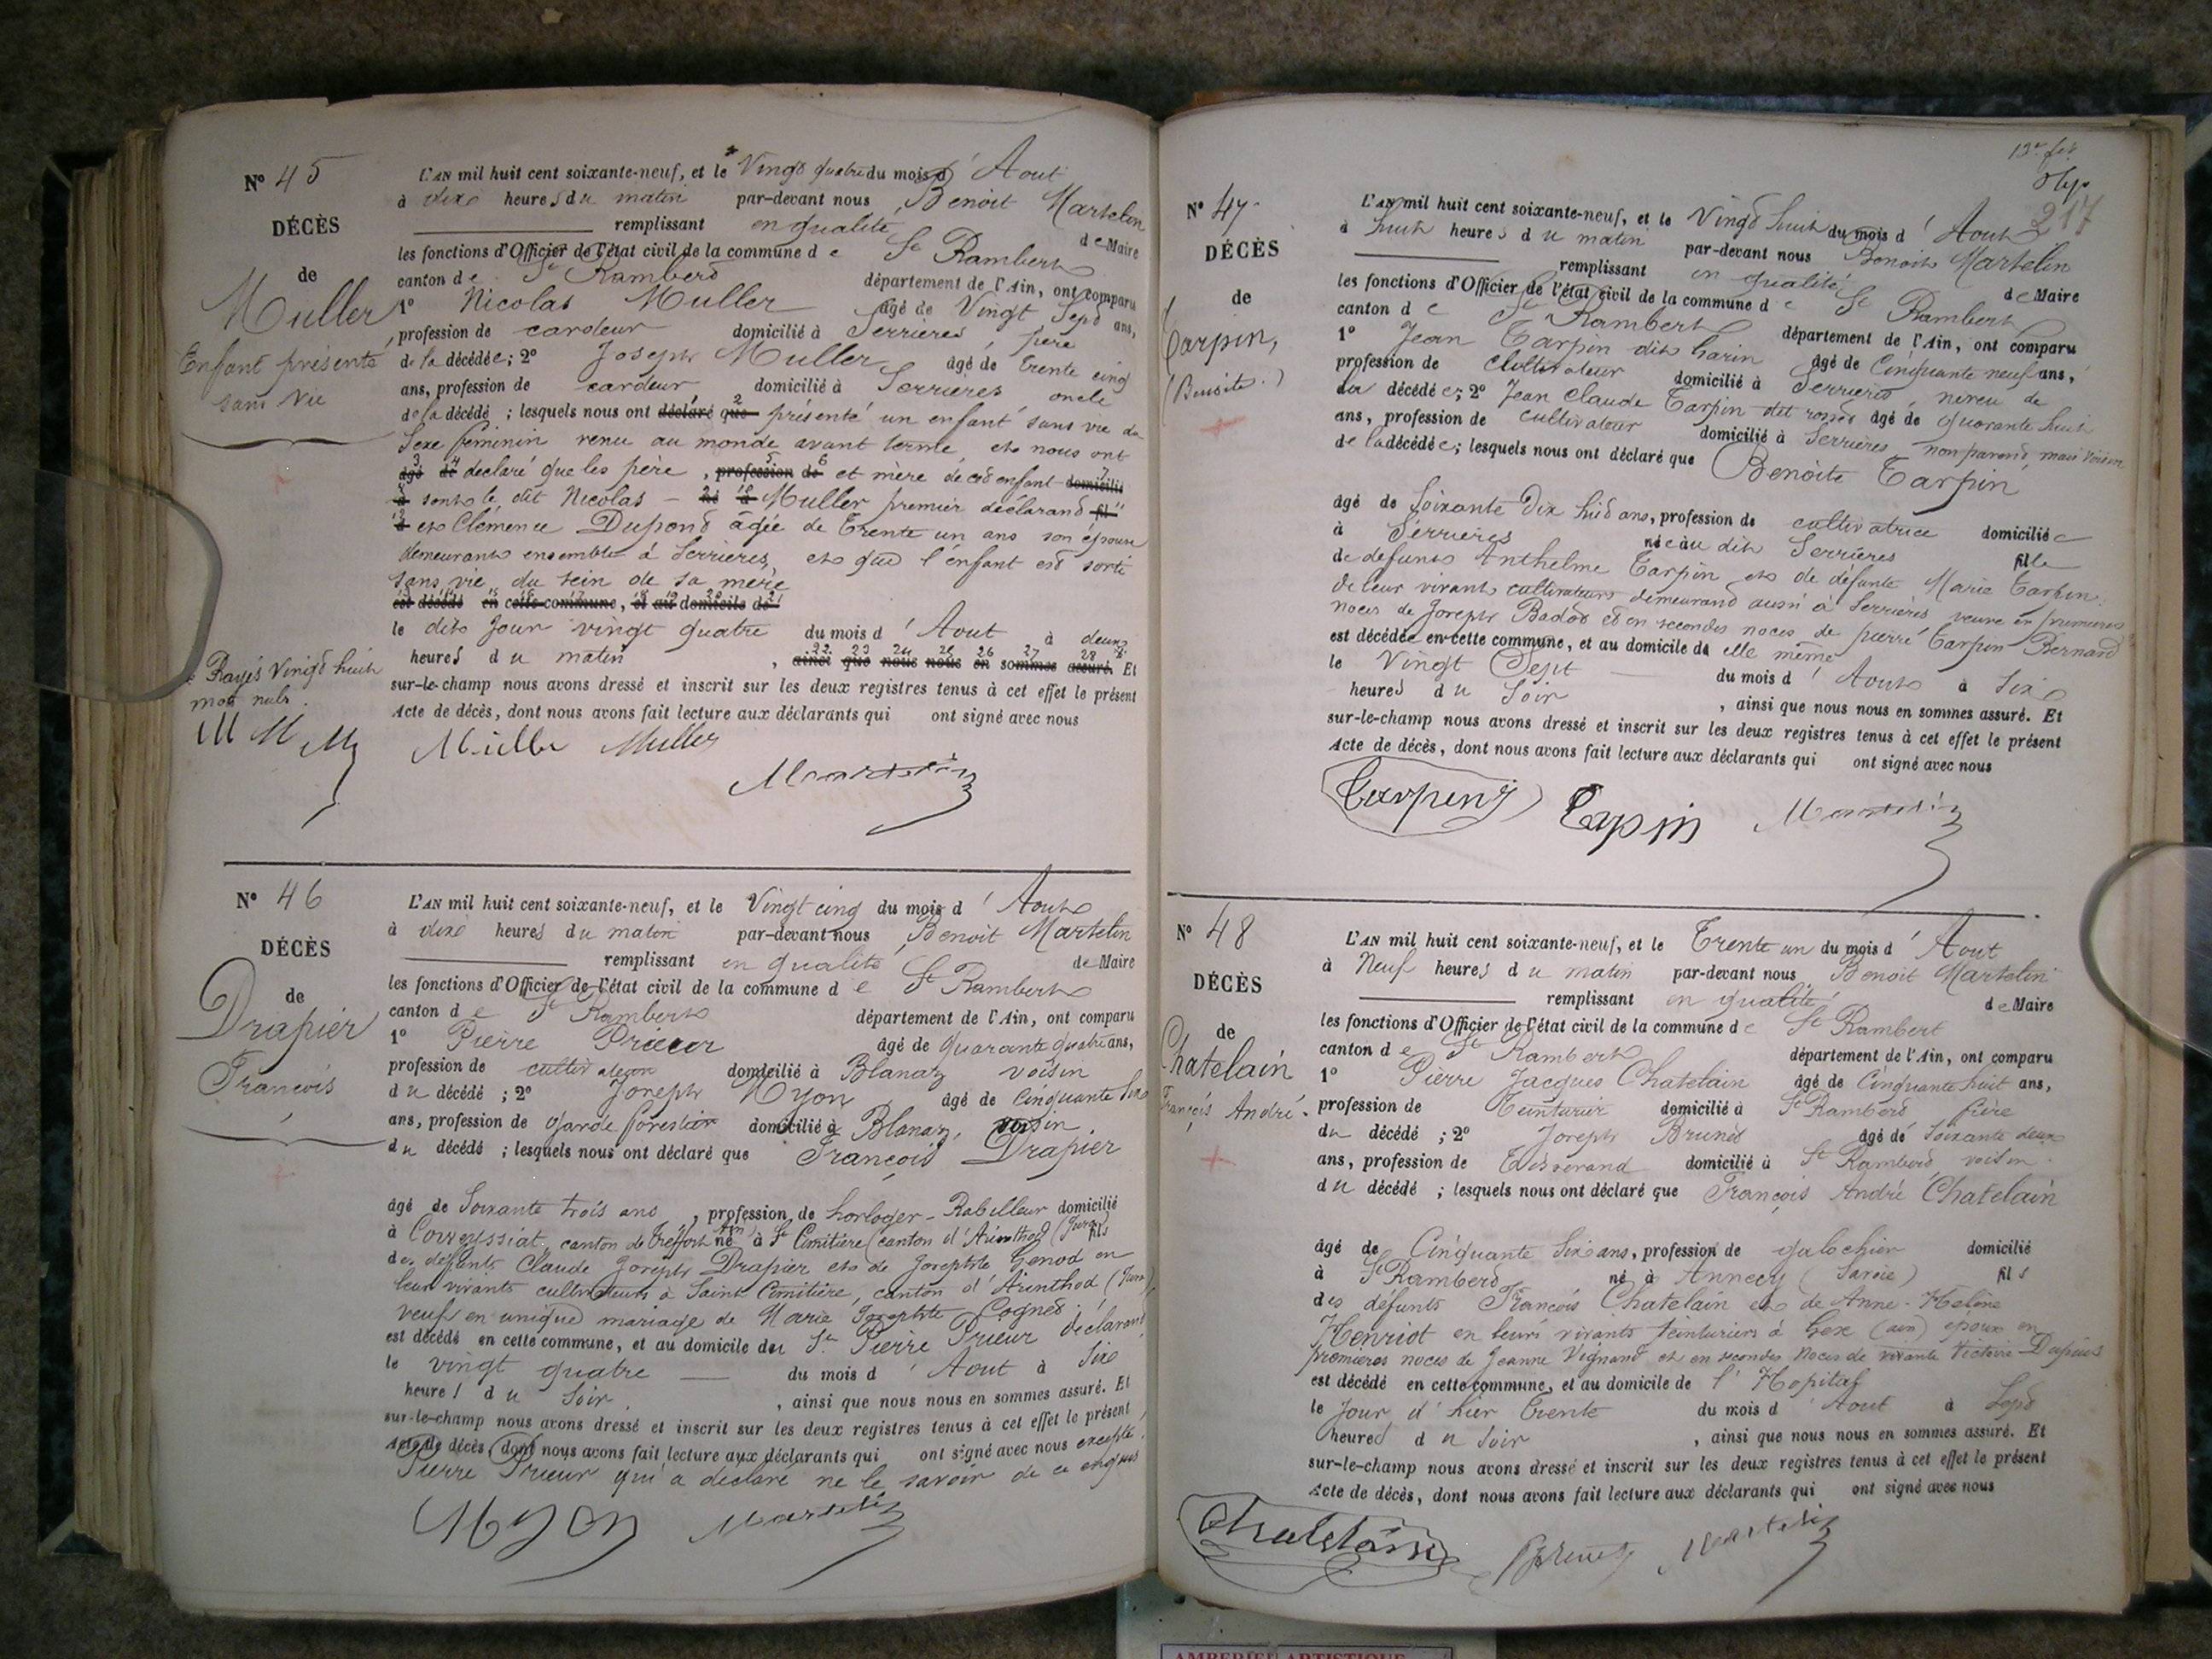 N° 45
DÉCÈS
de
Muller
Enfant présenté
sans vie
Rayés Vingt huit
mots nuls.
M M M
L'AN mil huit cent soixante-neuf, et le Vingt quatre du mois d'Aout
à dix heures du matin par-devant nous, Benoit Martelin
remplissant en qualité de Maire
les fonctions d'Officier de l'état civil de la commune de St Rambert
canton de St Rambert département de l'Ain, ont comparu
1° Nicolas Muller âgé de Vingt Sept ans,
profession de cardeur domicilié à Serrières, père
de la décédée; 2° Joseph Muller âgé de trente cinq
ans, profession de cardeur domicilié à Serrières oncle
de la décédé ; lesquels nous ont déclaré que présenté un enfant sans vie du
Sexe féminin venu au monde avant terme, et nous ont
âgé de declaré que les père, profession de et mère de cet enfant domicilié
à sont le dit Nicolas - né à Muller premier déclarant fil
d et Clémence Dupond âgée de Trente un ans son épouse
demeurants ensemble à Serrières, et que l'enfant est sorti
sans vie du sein de sa mère
est décédé en cette commune, et au domicile de
le dit Jour vingt quatre du mois d'Aout à deux
heures du matin, ainsi que nous nous en sommes assuré. Et
sur-le-champ nous avons dressé et inscrit sur les deux registres tenus à cet effet le présent
Acte de décès, dont nous avons fait lecture aux déclarants qui ont signé avec nous
Muller Muller
Martelin
N° 46
DÉCÈS
de
Drapier
François
L'AN mil huit cent soixante-neuf, et le Vingt cinq du mois d'Aout
à dix heures du matin par-devant nous, Benoit Martelin
remplissant en qualité de Maire
les fonctions d'Officier de l'état civil de la commune de St Rambert
canton de St Rambert département de l'Ain, ont comparu
1° Pierre Prieur âgé de quarante quatre ans,
profession de cultivateur domicilié à Blanaz voisin
du décédé ; 2° Joseph Myon âgé de Cinquante six
ans, profession de garde forestier domicilié à Blanaz, voisin
du décédé ; lesquels nous ont déclaré que François Drapier
âgé de Soixante trois ans, profession de horloger-Rabilleur domicilié
à Correyssiat, canton de Treffort (Ain) né à St Cimitière (canton d'Arinthod (Jura) fils
des défunts Claude Joseph Drapier et de Josephte Genod en
leur vivants cultivateurs à Saint Cimitière, canton d'Arinthod (Jura),
veuf en unique mariage de Marie Josephte Cogned.
est décédé en cette commune, et au domicile du Sr Pierre Prieur déclarant
le vingt quatre du mois d'Aout à Six
heures du Soir, ainsi que nous nous en sommes assuré. Et
sur-le-champ nous avons dressé et inscrit sur les deux registres tenus à cet effet le présent
Acte de décès, dont nous avons fait lecture aux déclarants qui ont signé avec nous excepté
Pierre Prieur qui a déclaré ne le savoir de ce enquis
Myon Martelin
217
N° 47
DÉCÈS
de
Tarpin,
(Benoite.)
L'AN mil huit cent soixante-neuf, et le Vingt huit du mois d'Aout
à huit heures du matin par-devant nous Benoit Martelin
remplissant en qualité de Maire
les fonctions d'Officier de l'état civil de la commune de St Rambert
canton de St Rambert département de l'Ain, ont comparu
1° Jean Tarpin dit harin âgé de Cinquante neuf ans,
profession de Cultivateur domicilié à Serrières, neveu de
la décédée; 2° Jean Claude Tarpin dit rosset âgé de quarante huit
ans, profession de cultivateur domicilié à Serrières non parent, mais voisin
de la décédée; lesquels nous ont déclaré que Benoite Tarpin
âgé de Soixante Dix huit ans, profession de cultivatrice domiciliée
à Serrières née au dit Serrières fille
de defunts Anthelme Tarpin et de défunte Marie Tarpin
de leur vivant cultivateurs demeurant aussi à Serrières veuve en premieres
noces de Joseph Badod et en secondes noces de pierre Tarpin Bernard
est décédée en cette commune, et au domicile de elle même
le Vingt Sept du mois d'Aout à Six
heures du Soir, ainsi que nous nous en sommes assuré. Et
sur-le-champ nous avons dressé et inscrit sur les deux registres tenus à cet effet le présent
Acte de décès, dont nous avons fait lecture aux déclarants qui ont signé avec nous
Tarpin Tapin Martelin
N° 48
DÉCÈS
de
Chatelain
François André.
L'AN mil huit cent soixante-neuf, et le Trente un du mois d'Aout
à Neuf heures du matin par-devant nous Benoit Martelin
remplissant en qualité de Maire
les fonctions d'Officier de l'état civil de la commune de St Rambert
canton de St Rambert département de l'Ain, ont comparu
1° Pierre Jacques Chatelain âgé de Cinquante huit ans,
profession de Teinturier domicilié à St Rambert frère
du décédé ; 2° Joseph Brunet âgé de Soixante deux
ans, profession de Tisserand domicilié à St Rambert, voisin
du décédé ; lesquels nous ont déclaré que François André Chatelain
âgé de Cinquante Six ans, profession de galochier domicilié
à St Rambert né à Annecy (Savoie) fils
des défunts François Chatelain et de Anne-Helène
Henriot en leurs vivants teinturiers à Gex (ain) epoux en
premieres noces de Jeanne Vignand et en secondes Noces de vivante Victoire Dupuis
est décédé en cette commune, et au domicile de l'Hopital
le Jour d'hier Trente du mois d'Aout à Sept
heures du Soir, ainsi que nous nous en sommes assuré. Et
sur-le-champ nous avons dressé et inscrit sur les deux registres tenus à cet effet le présent
Acte de décès, dont nous avons fait lecture aux déclarants qui ont signé avec nous
Chatelain Brunet Martelin
AMBERIEU ARTISTIQUE